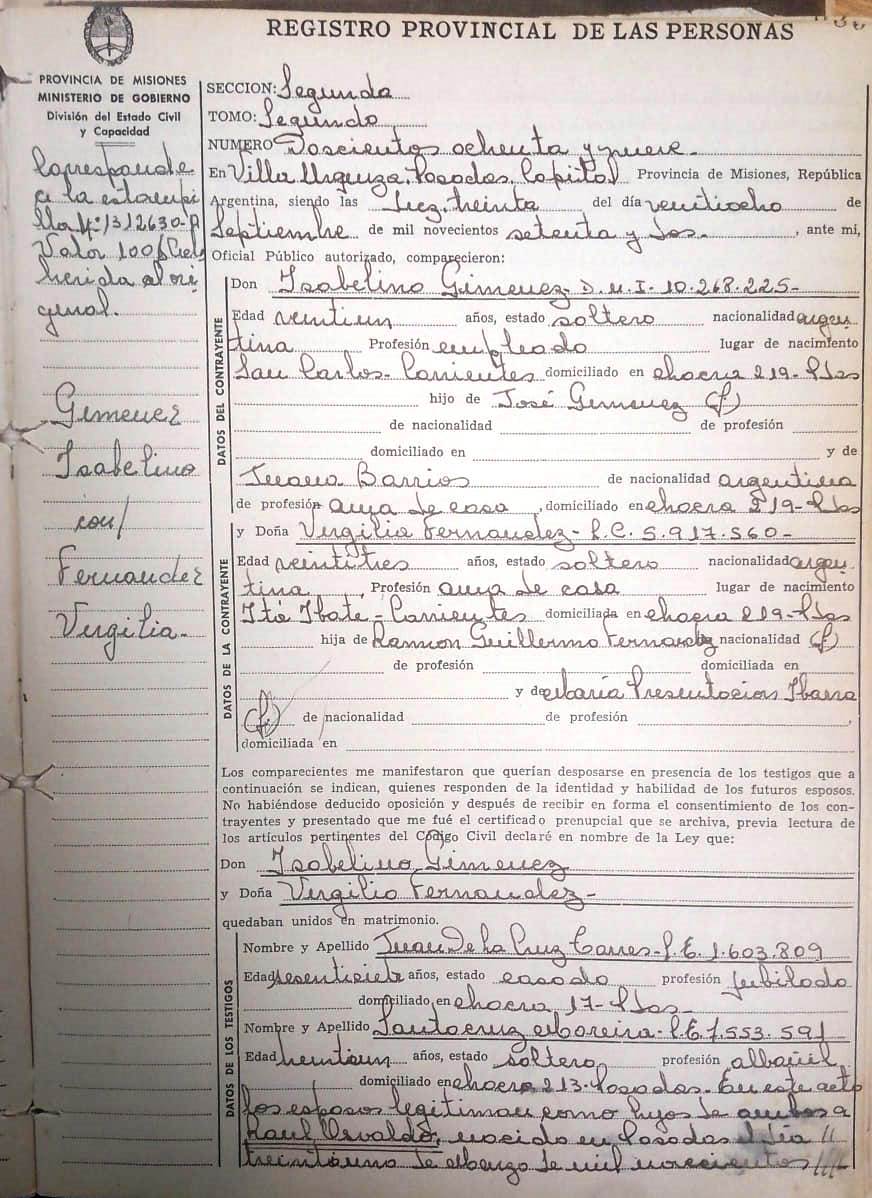 REGISTRO PROVINCIAL DE LAS PERSONAS
PROVINCIA DE MISIONES
MINISTERIO DE GOBIERNO
División del Estado Civil
y Capacidad
Corresponde
a la estampi
lla Nº 1312630-A
Valor 100$
herida al ori
ginal.
Gimenez
Isabelino
con/
Fernandez
Virgilia-
SECCION: Segunda
TOMO: Segundo
NUMERO Doscientos ochenta y nueve-
En Villa Urquiza, Posadas, Capital Provincia de Misiones, República
Argentina, siendo las diez, treinta del día veintiocho de
Septiembre de mil novecientos setenta y dos- , ante mi,
Oficial Público autorizado, comparecieron:
DATOS DEL CONTRAYENTE
Don Isabelino Gimenez- D.N.I- 10.268.225-
Edad veintiun años, estado soltero nacionalidad argen
tina Profesión empleado lugar de nacimiento
San Carlos- Corrientes domiciliado en chacra 219- Pdas
hijo de José Gimenez (f)
de nacionalidad de profesión
domiciliado en y de
Juana Barrios de nacionalidad argentina
de profesión ama de casa , domiciliado en chacra 219- Pdas
DATOS DE LA CONTRAYENTE
y Doña Virgilia Fernandez- L.C. 5.917.560-
Edad veintitres años, estado soltera nacionalidad argen
tina , Profesión ama de casa lugar de nacimiento
Itá Ibate- Corrientes domiciliada en chacra 219- Pdas
hija de Ramon Guillermo Fernandez nacionalidad (f)
de profesión domiciliada en
y de María Presentacion Ibarra
(f) de nacionalidad de profesión ,
domiciliada en
Los comparecientes me manifestaron que querían desposarse en presencia de los testigos que a
continuación se indican, quienes responden de la identidad y habilidad de los futuros esposos.
No habiéndose deducido oposición y después de recibir en forma el consentimiento de los con-
trayentes y presentado que me fué el certificado prenupcial que se archiva, previa lectura de
los artículos pertinentes del Código Civil declaré en nombre de la Ley que:
Don Isabelino Gimenez
y Doña Virgilia Fernandez-
quedaban unidos en matrimonio.
DATOS DE LOS TESTIGOS
Nombre y Apellido Juan De la Cruz Torres- L.E. 1.603.809
Edad sesentisiete años, estado casado profesión jubilado
domiciliado en chacra 17- Pdas-
Nombre y Apellido Santacruz Moreira- L.E. 7.553.591
Edad años, estado soltero profesión albañil,
domiciliado en chacra 213- Posadas- En este acto
los esposos legitiman como hijos de ambos a
Raul Osvaldo, nacido en Posadas el día //
treintauno de Marzo de mil novecientos ////